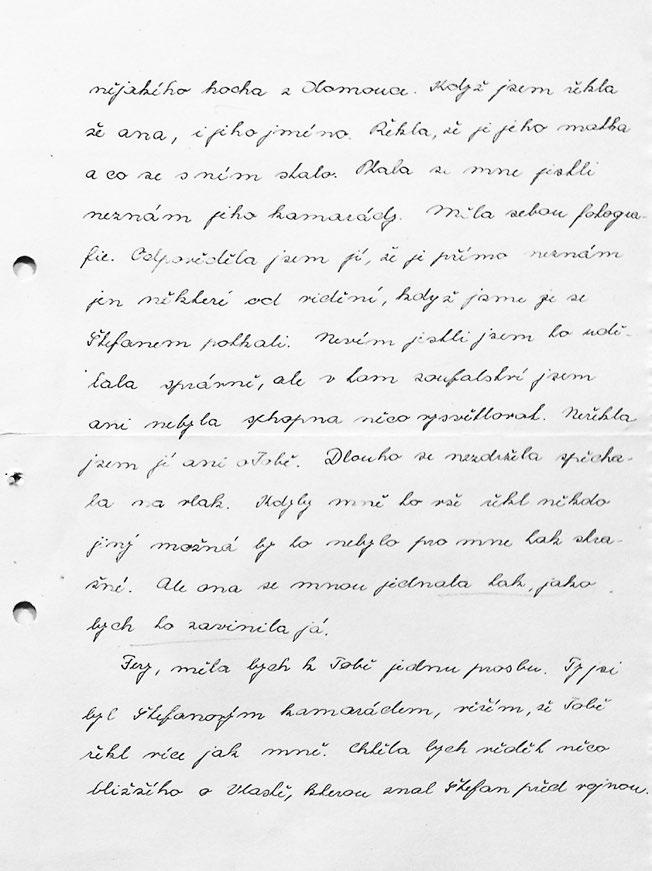 nějakého hocha z Olomouce. Když jsem řekla
že ana, i jeho jméno. Řekla, že je jeho matka
a co se s ním stalo. Ptala se mne jestli
neznám jeho kamarády. Měla sebou fotogra-
fie. Odpověděla jsem jí, že je přímo neznám
jen některé od vidění, když jsme je se
Štefanem potkali. Nevím jestli jsem to udě-
lala správně, ale v tom zoufalství jsem
ani nebyla schopna něco vysvětlovat. Neřekla
jsem jí ani o Tobě. Dlouho se nezdržela spěcha-
la na vlak. Kdyby mně to vše řekl někdo
jiný možná by to nebylo pro mne tak stra-
šné. Ale ona se mnou jednala tak, jako
bych to zavinila já.
Fery, měla bych k Tobě jednu prosbu. Ty jsi
byl Štefanovým kamarádem, věřím, že Tobě
řekl více jak mně. Chtěla bych vědět něco
bližšího o Vlastě, kterou znal Štefan před vojnou.